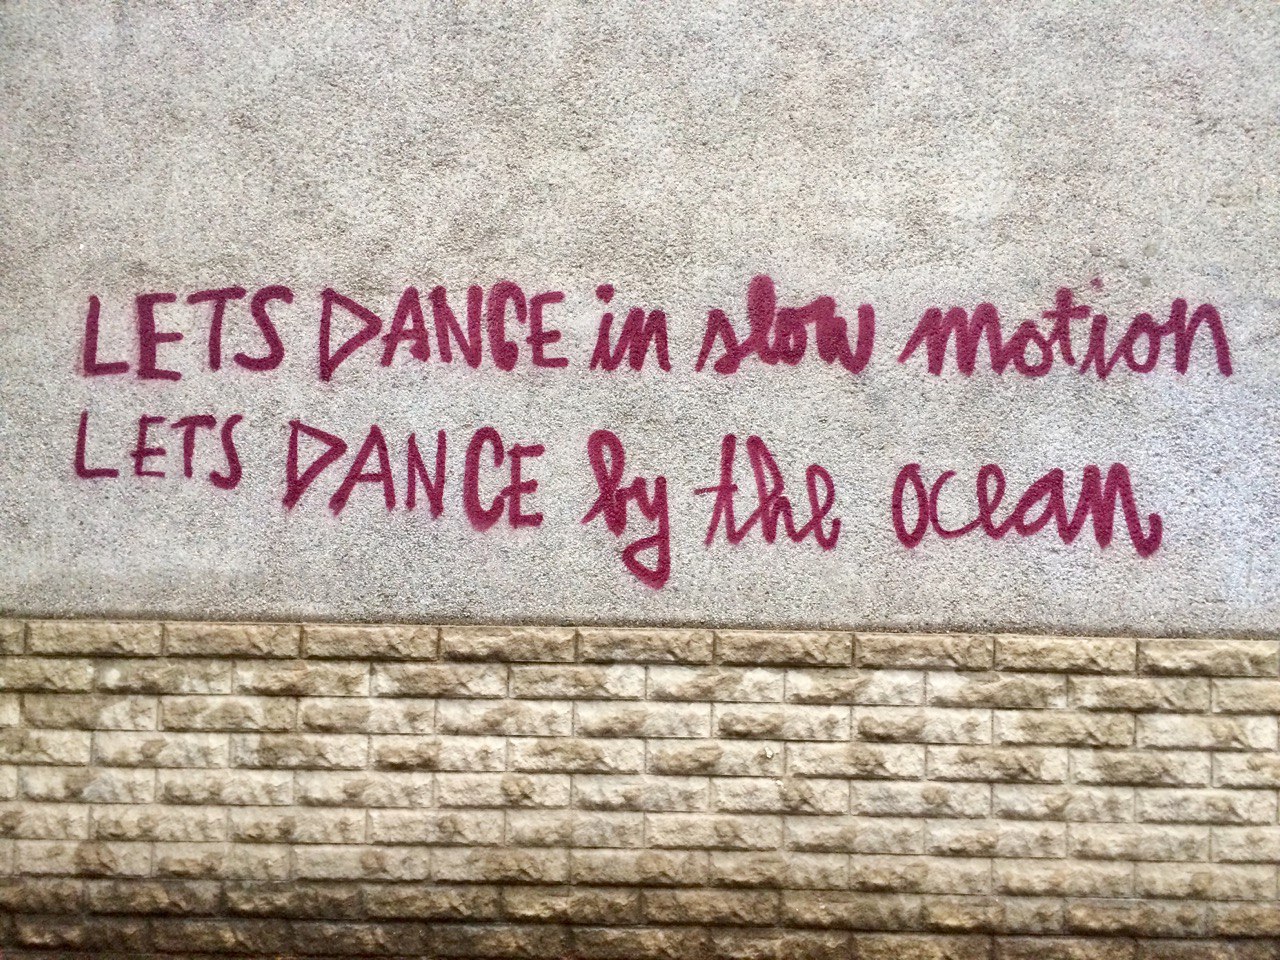 LETS DANCE in slow motion
LETS DANCE by the ocean